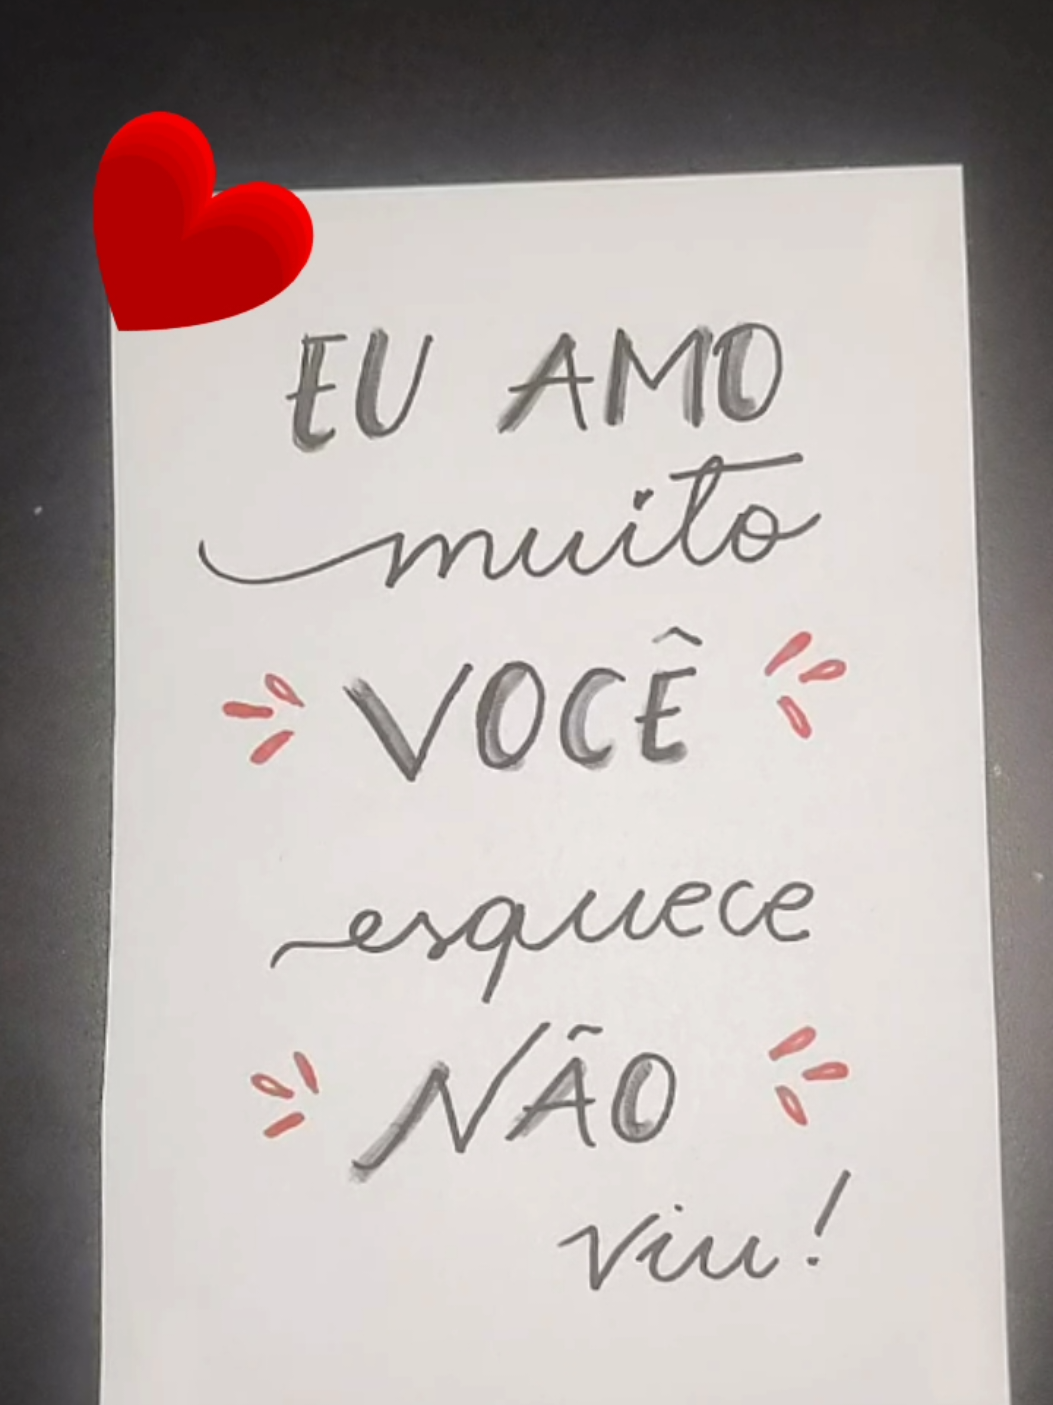 EU AMO
muito
VOCÊ
esquece
NÃO
viu!